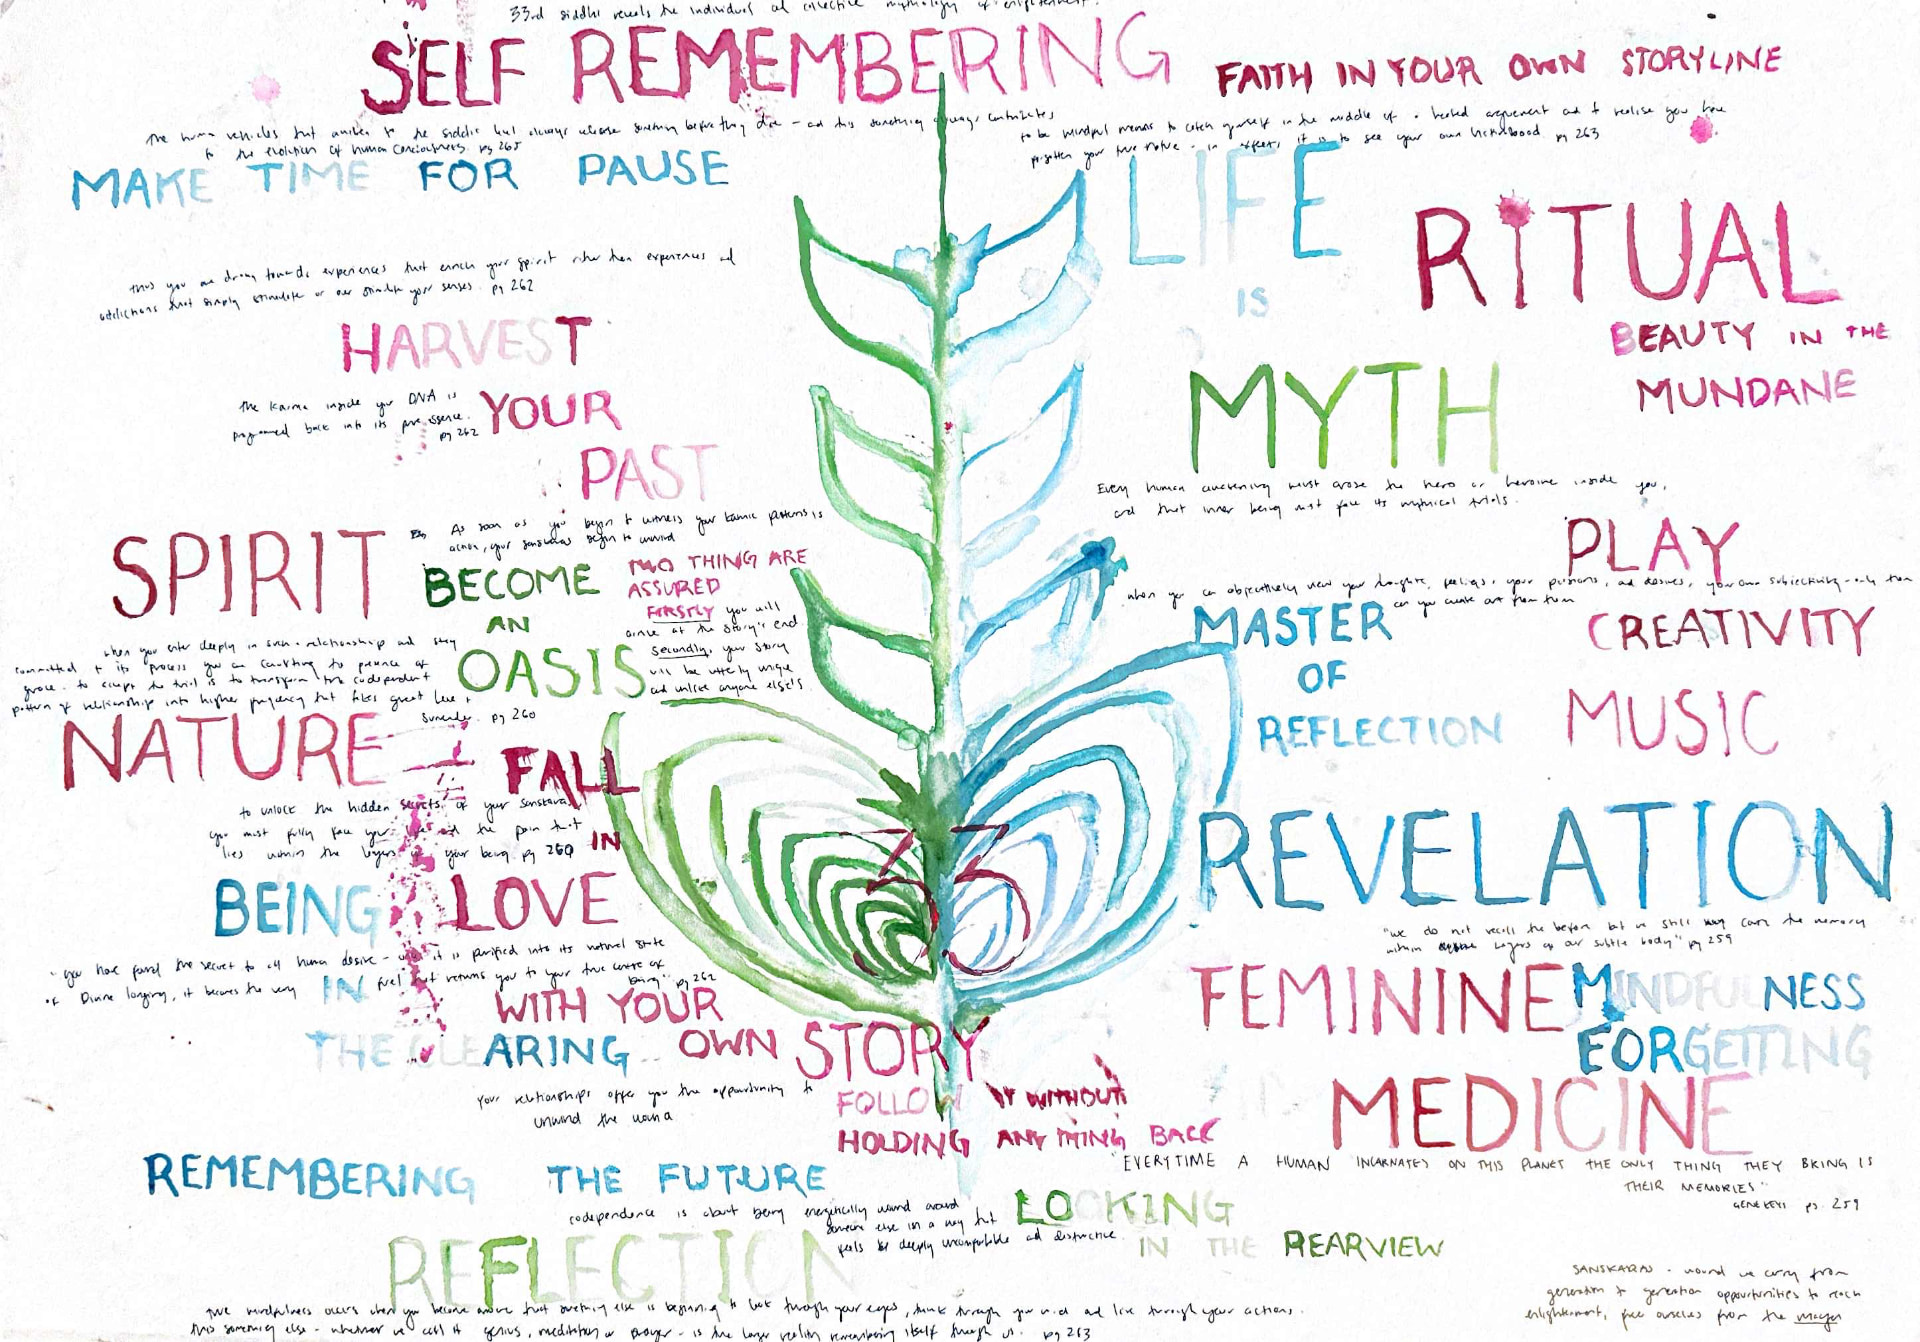 33rd siddhi reveals the individual and collective mythology of enlightenment.
SELF REMEMBERING
FAITH IN YOUR OWN STORYLINE
The human vehicles that awaken to the siddhic level always release something before they die - and this something always contributes
to the evolution of human consciousness. pg 265
to be mindful means to catch yourself in the middle of a heated arguement and to realise you have
forgotten your true nature - in effect, it is to see your own victimhood. pg 263
MAKE TIME FOR PAUSE
LIFE
IS
RITUAL
BEAUTY IN THE
MUNDANE
thus you are drawn towards experiences that enrich your spirit rather than experiences and
addictions that simply stimulate or over stimulate your senses. pg 262
HARVEST
YOUR
PAST
The karma inside your DNA is
programmed back into its pure essence.
pg 262
MYTH
Every human awakening must arose the hero or heroine inside you,
and that inner being must face its mythical trials.
SPIRIT
As soon as you begin to witness your karmic patterns in
action, your sanskaras begin to unwind
BECOME
AN
OASIS
TWO THING ARE
ASSURED
FIRSTLY you will
arrive at the story's end
Secondly, your story
will be utterly unique
and unlike anyone else's
PLAY
when you can objectively view your thoughts, feelings, your passions, and desires, your own subjectivity - only then
can you create art from them
MASTER
OF
REFLECTION
CREATIVITY
MUSIC
when you enter deeply in such a relationship and stay
committed to its process you are
grace. to accept the trial is to transform the codependent
pattern of relationship into higher frequency that takes great love +
surrender. pg 260
NATURE
FALL
IN
LOVE
to unlock the hidden secrets of your sanskaras,
you must fully face your life and the pain that
lies within the layers of your being pg 260
33
REVELATION
BEING
IN
THE CLEARING
"you have found the secret to all human desire - it is purified into its natural state
of Divine longing, it becomes the very fuel that returns you to your true centre of
being" pg 262
WITH YOUR
OWN STORY
"we do not recall the before but we still may carry the memory
within layers of our subtle body" pg 259
FEMININE
MINDFULNESS
FORGETTING
MEDICINE
your relationships offer you the oppourtunity to
unwind the wound
FOLLOW IT WITHOUT
HOLDING ANYTHING BACK
"EVERYTIME A HUMAN INCARNATES ON THIS PLANET THE ONLY THING THEY BRING IS
THEIR MEMORIES"
GENE KEYS pg 259
REMEMBERING THE FUTURE
codependence is about being energetically wound around
someone else in a way that
feels both deeply uncomfortable and destructive
LOOKING
IN THE REARVIEW
REFLECTION
SANSKARAS - wound we carry from
generation to generation oppourtunities to reach
enlightenment, free ourselves from the maya
true mindfulness occurs when you become aware that something else is beginning to look through your eyes, think through your mind and live through your actions.
this something else - whether we call it genius, meditation or prayer - is the larger reality remembering itself through us. pg 263